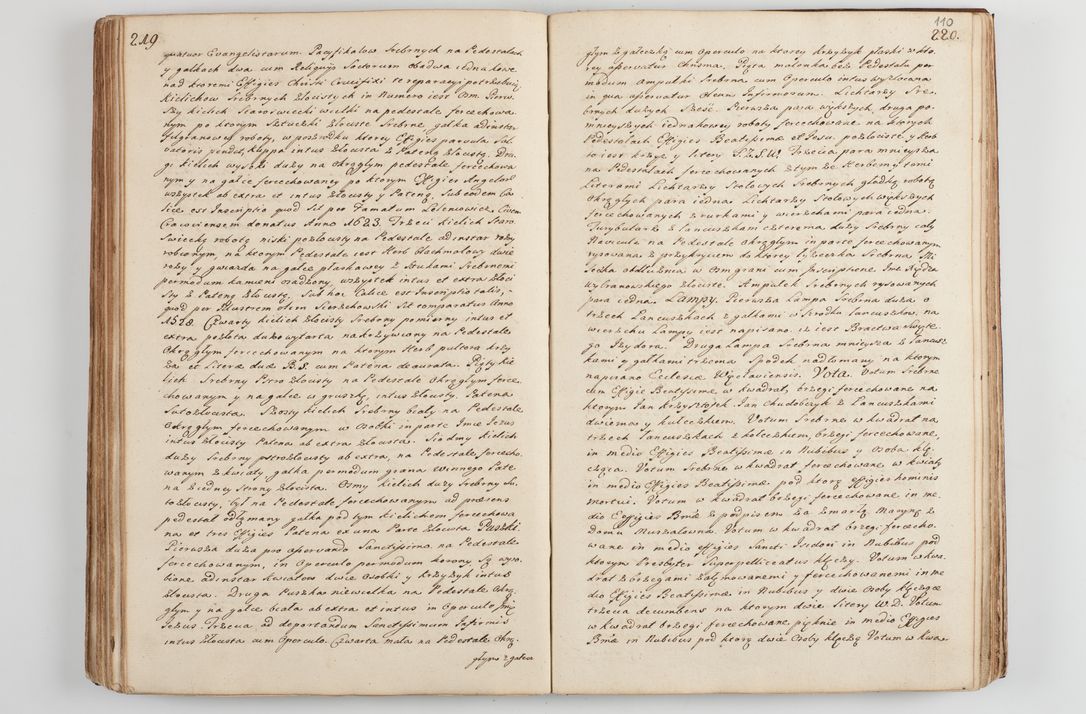 219
quatuor Evangelistarum. Pacyfikałow srebrnych na Pedestałach
y gałkach dwa cum Reliquijs Sactorum obadwa iednakowe
nad ktoremi Effigies Christi Crucifixi te reparacyi potrzebuią
Kielichow Srebrnych złocistych in Numero iest osm. Pierw-
szy kielich staroswiecki wielki na pedestale ferechowa
nym po ktorym sztuczki złociste srebrne gałka adinstar
filigranowey roboty, w posrzodku ktorey Effigies parvula Sal-
vatoris pendet, kuppa intus złocista z Pateną złocistą. Dru-
gi kielich wyszki duży na okrągłym pedestale ferechowa
nym y na gałce ferechowaney po ktorym Effigies Angelorum
wszystek ab extra et intus złocisty y Pateną. Sub eodem Ca-
lice est Inscriptio quod sit per Famatum Leseniowicz Civem
Cracoviensem donatus Anno 1623. Trzeci kielich staro-
swiecką robotą niski pozłocisty na Pedestale adinstar roży
robionym, na ktorym Pedestale iest Herb
roży y gwiazda na gałce płaskowey z sztukami srebrnemi
permodum kamieni osadzony, wszystek intus et extra złoci
sty z Pateną złocistą. Sub hoc Calice est Inscriptio talis,
quod per Illustrem olim Sierzchowski sit comparatus Anno
1528. Czwarty kielich złocisty srebrny pomierny intus et
extra pozłota dużo wytarta nakrzywiony na Pedestale
okrągłym ferechowanym na ktorym Herb pułtora krzy
ża et Literæ duæ B. S. cum Patena deaurata. Piąty kie
lich srebrny Pstro złocisty na Pedestale okrągłym ferce
chowanym y na gałce w gruszkę, intus złocisty. Patena
suto złocista. Szosty kielich srebrny biały na Pedestale
okrągłym ferechowanym w osobki in parte Imie Jezus
intus złocisty Patena ab extra złocista. Siodmy kielich
duży srebrny pstrozłocisty ab extra, na Pedestale ferecho
wanym z kwiaty gałka permodum grana winnego Pate
na z iedney strony złocista. Osmy kielich duży srebrny su-
to złocisty, był na Pedestale ferechowanym ad præsens
pedestał odłamany gałka pod tym kielichem ferechowa
na et tres Effigies Patena ex una Parte złocista Puszki
Pierwsza duża pro asservando Sanctissimo na Pedestale
ferechowanym, in operculo permodum korony są wyro-
bione adinstar kwiatow dwie osobki y krzyżyk intus
złocista. Druga Puszka niewielka na Pedestale okrą-
głym y na gałce biała ab extra et intus in operculo Imie
Jezus. Trzecia ad deportandum Sanctissimum Infirmis
intus złocista cum operculo. Czwarta mała na Pedestale okrą-
głym z gałecz
110
220.
głym z gałeczką cum operculo na ktorey krzyżyk płaski w kto
rey asservatur Chrisma. Piąta malenka bez Pedestału per
modum Ampułki srebrna cum operculo intus wyzłacana
in qua asservatur oleum Infirmorum. Lichtarzy Sre-
brnych dużych szesc. Pierwsza para wyższych, druga po-
mnieyszych iednakowey roboty ferechowane na ktorych
Pedestałach Effigies Beatissimæ et Jesu pozłociste, y Herb
to iest krzyż y litery S. Z. S. W. Trzecia para mnieysza
na Pedestałach ferechowanych z tym że Herbem y temi
Literami Lichtarzy stołowych srebrnych gładką robotą
okrągłych para iedna. Lichtarzy stołowych większych
ferechowanych z rurkami y wierzchami para iedna.
Turybularz z łancuszkami czterema duży srebrny cały
Navicula na Pedestale okrągłym in parte ferechowanym
rysowana z przykryciem do ktorey łyżeczka srebrna Mi
seczka obdłużnia w osm grani cum Inscriptione Imc Xiędza
Wybranowskiego złociste. Ampułek srebrnych rysowanych
para iedna. Lampy. Pierwsza Lampa srebrna duża o
trzech łancuszkach z gałkami w srodku łancuszkow, na
wierzchu Lampy iest napisano iż iest Bractwa Swięte-
go Izydora. Druga Lampa srebrna mnieysza z łancusz
kami y gałkami trzema spodek nadłomany na ktorym
napisano Ecclesiæ Więclaviensis. Vota. Votum srebrne
cum Effigie Beatissimæ w kwadrat, brzegi ferechowane na
ktorym Jan Krzysztofek. Jan Chudobczyk z łancuszkami
dwiema y kulczkiem. Votum srebrne w kwadrat na
trzech łancuszkach z kolczkiem, brzegi ferechowane,
in medio Effigies Beatissimæ in Nubibus y osoba klę-
cząca. Votum srebrne w kwadrat ferechowane w kwiaty
in medio Effigies Beatissimæ pod ktorą Effigies hominis
mortui. Votum w kwadrat brzegi ferechowane in me-
dio Effigies Bmæ z podpisem za zmarłą Marynę z
Domu Muszałowna. Votum w kwadrat brzegi ferecho-
wane in medio effigies Sancti Isidori in Nubibus pod
ktorym Presbyter superpelliceatus klęczy. Votum w kwa-
drat z brzegami załamowanemi y ferechowanemi in me
dio Effigies Beatissimæ in Nubibus y dwie osoby klęczące
trzecia decumbens na ktorym dwie litery W. D. Votum
w kwadrat brzegi ferechowane pięknie in medio Effigies
Bmæ in Nubibus pod ktorą dwie osoby klęczą Votum w kwa